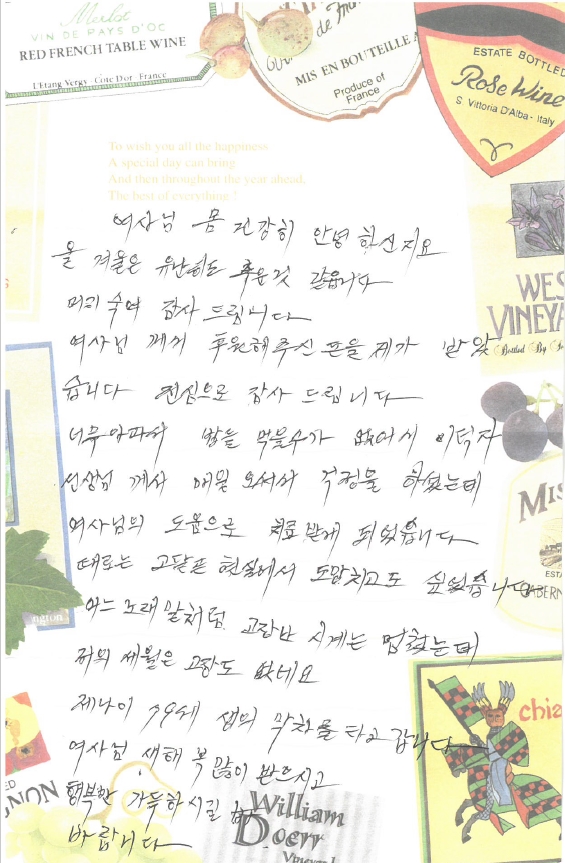 Merlot
VIN DE PAYS D'OC
RED FRENCH TABLE WINE
L'Etang Vergy · Côte D'or · France
MIS EN BOUTEILLE
Produce of
France
ESTATE BOTTLED
Rose Wine
S. Vittoria D'Alba - Italy
To wish you all the happiness
A special day can bring
And then throughout the year ahead,
The best of everything !
여사님 몸 건강히 안녕 하신지요
올 겨울은 유난히도 추운것 같읍니다
머리숙여 감사 드림니다
여사님 께서 후원해주신 돈을 제가 받았
습니다 진심으로 감사 드립니다
너무아파서 밥을 먹을수가 없어서 이덕자
선생님 께서 매일 오셔서 걱정을 하셨는데
여사님의 도움으로 치료받게 되었습니다
때로는 고달픈 현실에서 도망치고도 싶었습니다
어느 노래말처럼 고장난 시계는 멈췄는데
저의 세월은 고장도 없네요
제나이 79세 삶의 막차를 타고 갑니다
여사님 새해 복 많이 받으시고
행복만 가득하시길
바랍니다
WES
VINEYA
Bottled By
MIS
ESTA
CABERN
ngton
chia
NON
William
Doerr
Vineyard